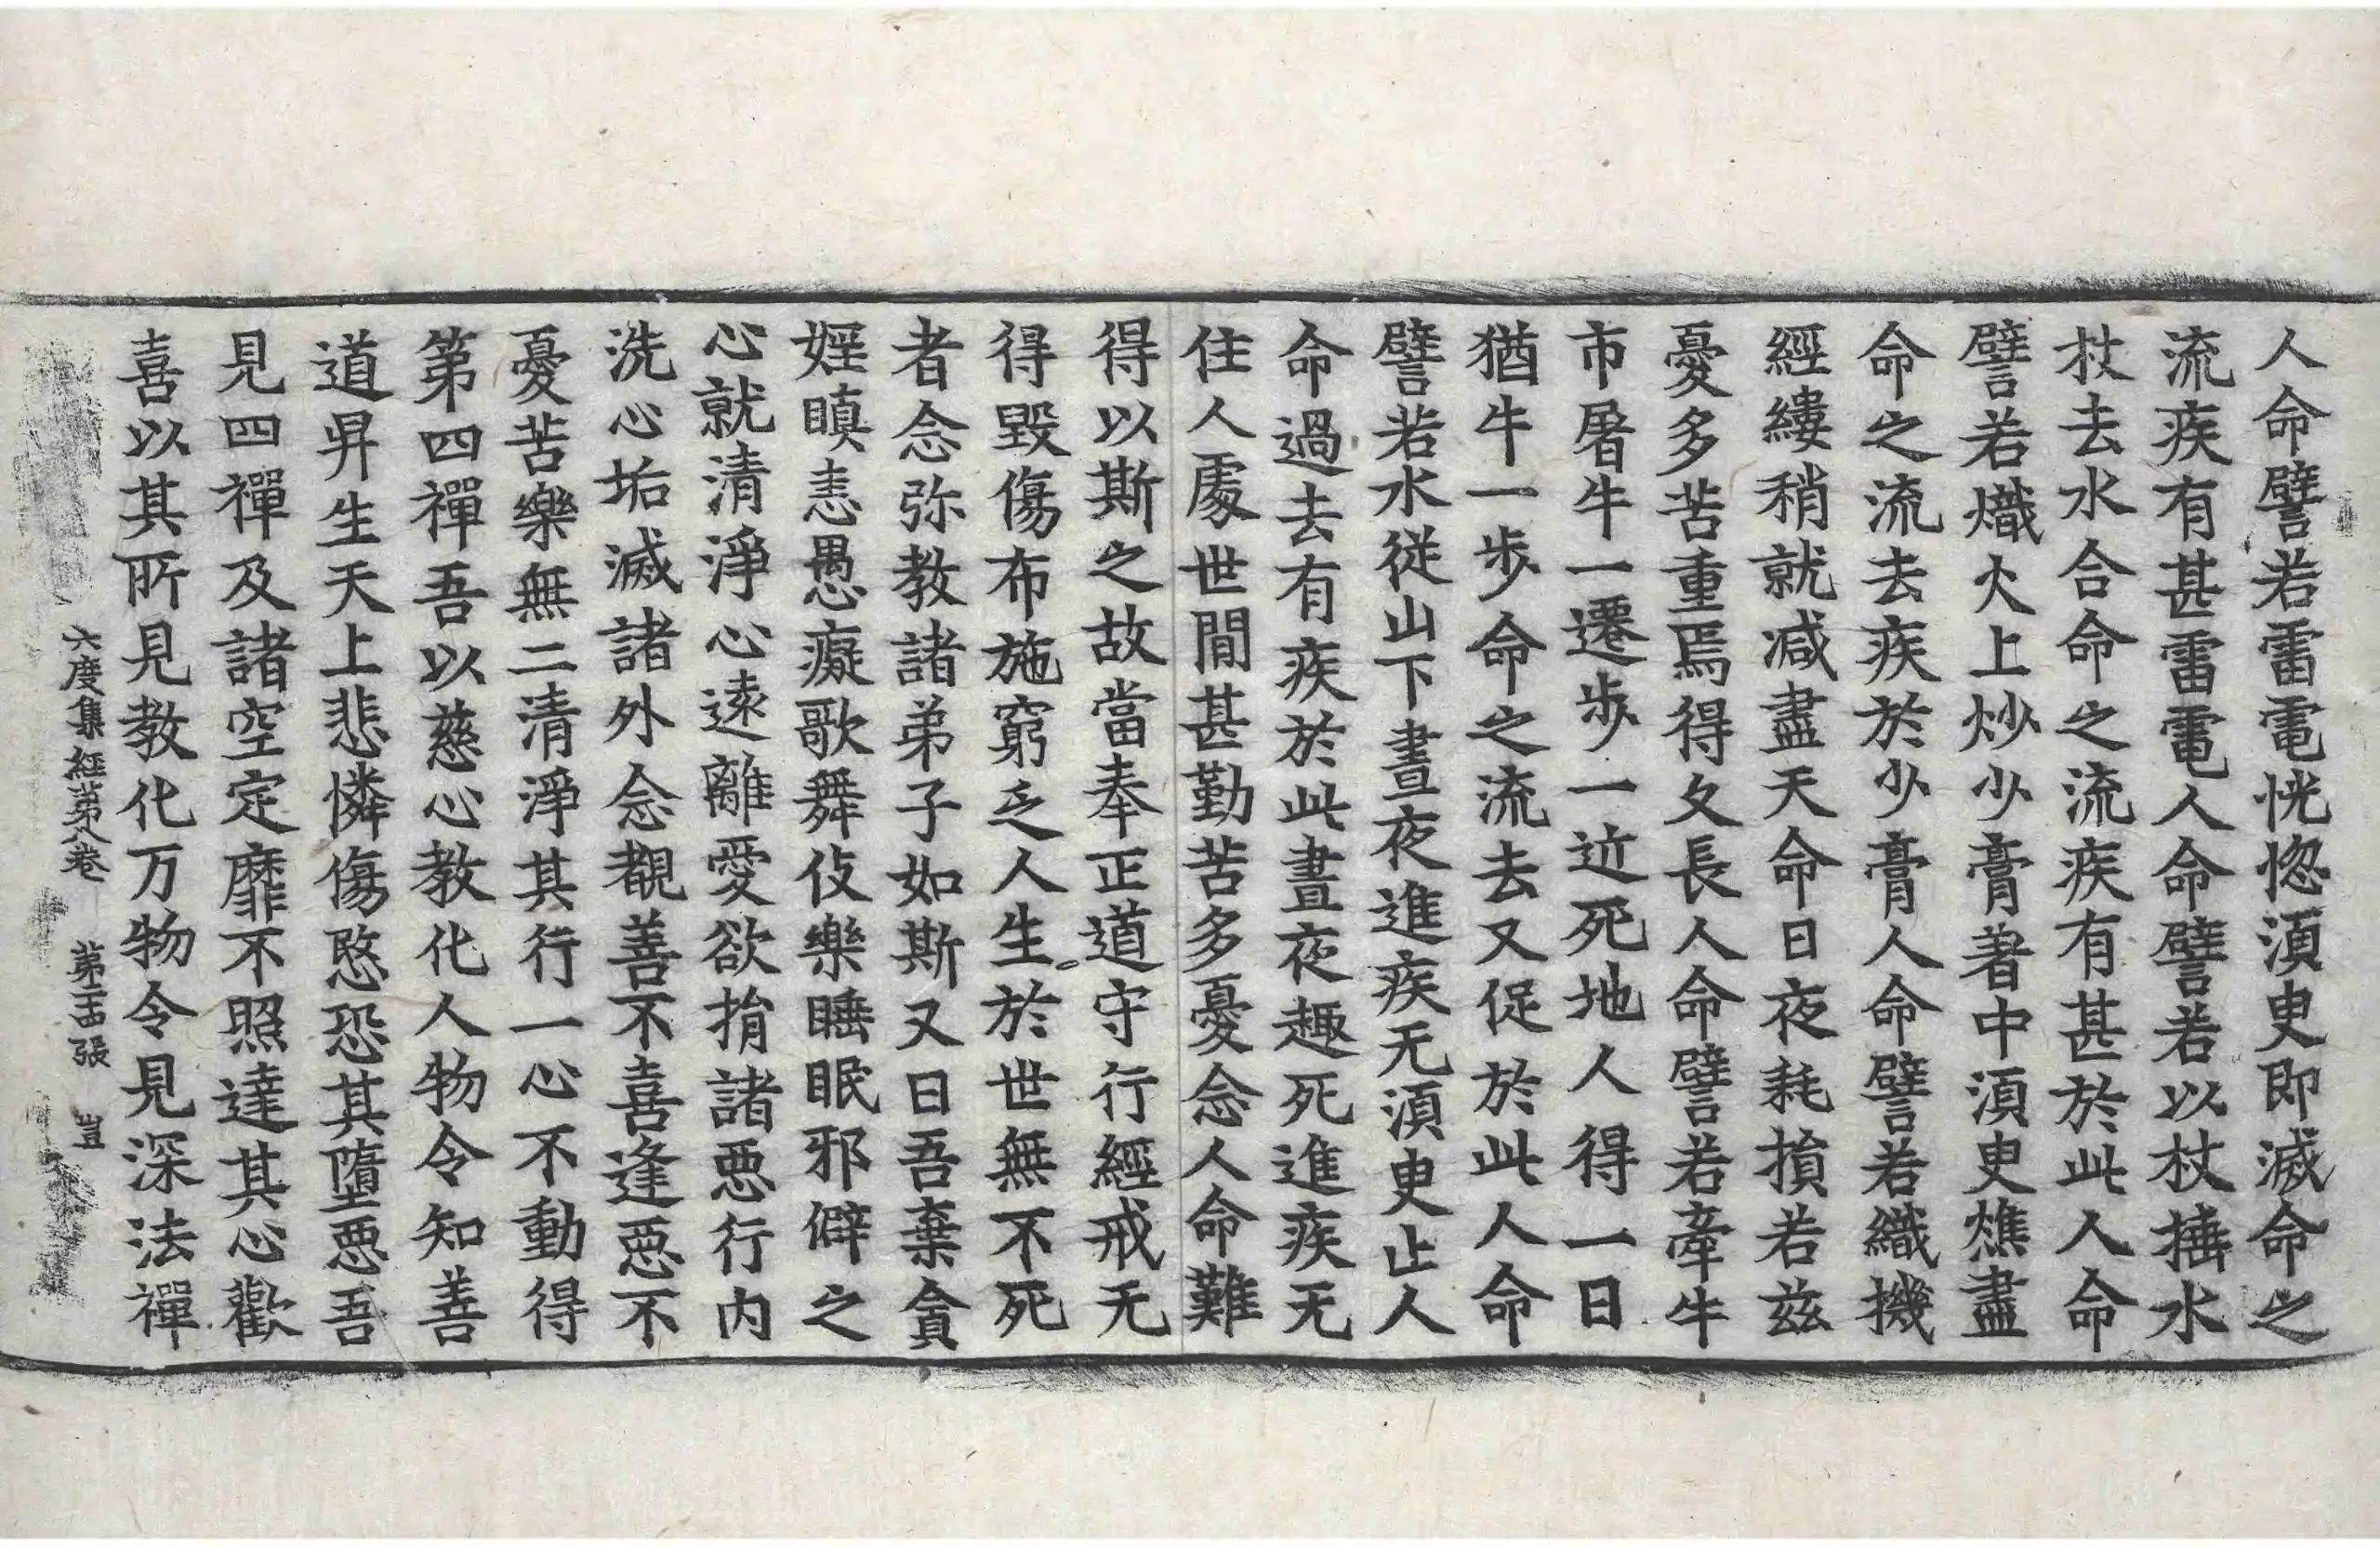 人命譬若雷電恍惚湏臾即滅命之
流疾有甚雷電人命譬若以杖捶水
杖去水合命之流疾有甚於此人命
譬若熾火上炒少膏著中湏臾燋盡
命之流去疾於少膏人命譬若織機
經縷稍就减盡天命日夜耗損若兹
憂多苦重焉得久長人命譬若牽牛
市屠牛一遷步一近死地人得一日
猶牛一步命之流去又促於此人命
譬若水從山下晝夜進疾无湏臾止人
命過去有疾於此晝夜趣死進疾无
住人處世間甚勤苦多憂念人命難
得以斯之故當奉正道守行經戒无
得毀傷布施窮乏人生於世無不死
者念弥教諸弟子如斯又曰吾棄貪
婬瞋恚愚癡歌舞伎樂睡眠邪僻之
心就清淨心遠離愛欲捐諸惡行内
洗心垢滅諸外念覩善不喜逢惡不
憂苦樂無二清淨其行一心不動得
第四禪吾以慈心教化人物令知善
道昇生天上悲憐傷愍恐其墮惡吾
見四禪及諸空定靡不照達其心歡
喜以其所見教化万物令見深法禪
六度集經第八卷 第二十四張 豈